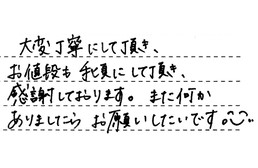 大変丁寧にして頂き、
お値段も手頃にして頂き、
感謝しております。また何か
ありましたら お願いしたいです。